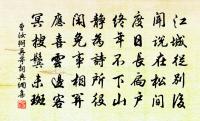 江城從別後
聞說在松間
度日長扃戶
終年不下山
靜為詩所役
閑免事相關
應喜雪邊客
冥搜鬢未斑
曹汝弼